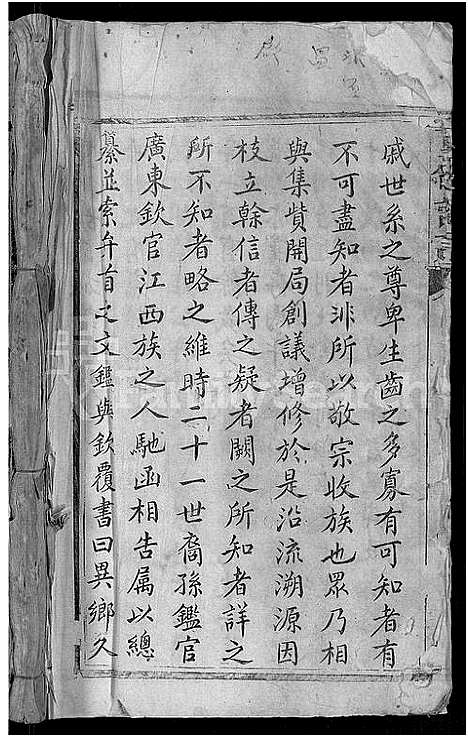 戚世系之尊卑生齒之多寡有可知者有
不可盡知者非所以敬宗收族也眾乃相
與集貲開局創議增修於是沿流溯源因
枝立幹信者傳之疑者闕之所知者詳之
所不知者略之維時二十一世裔孫鑑官
廣東欽官江西族之人馳函相告属以總
纂並索弁首之文鑑與欽覆書曰異鄉久